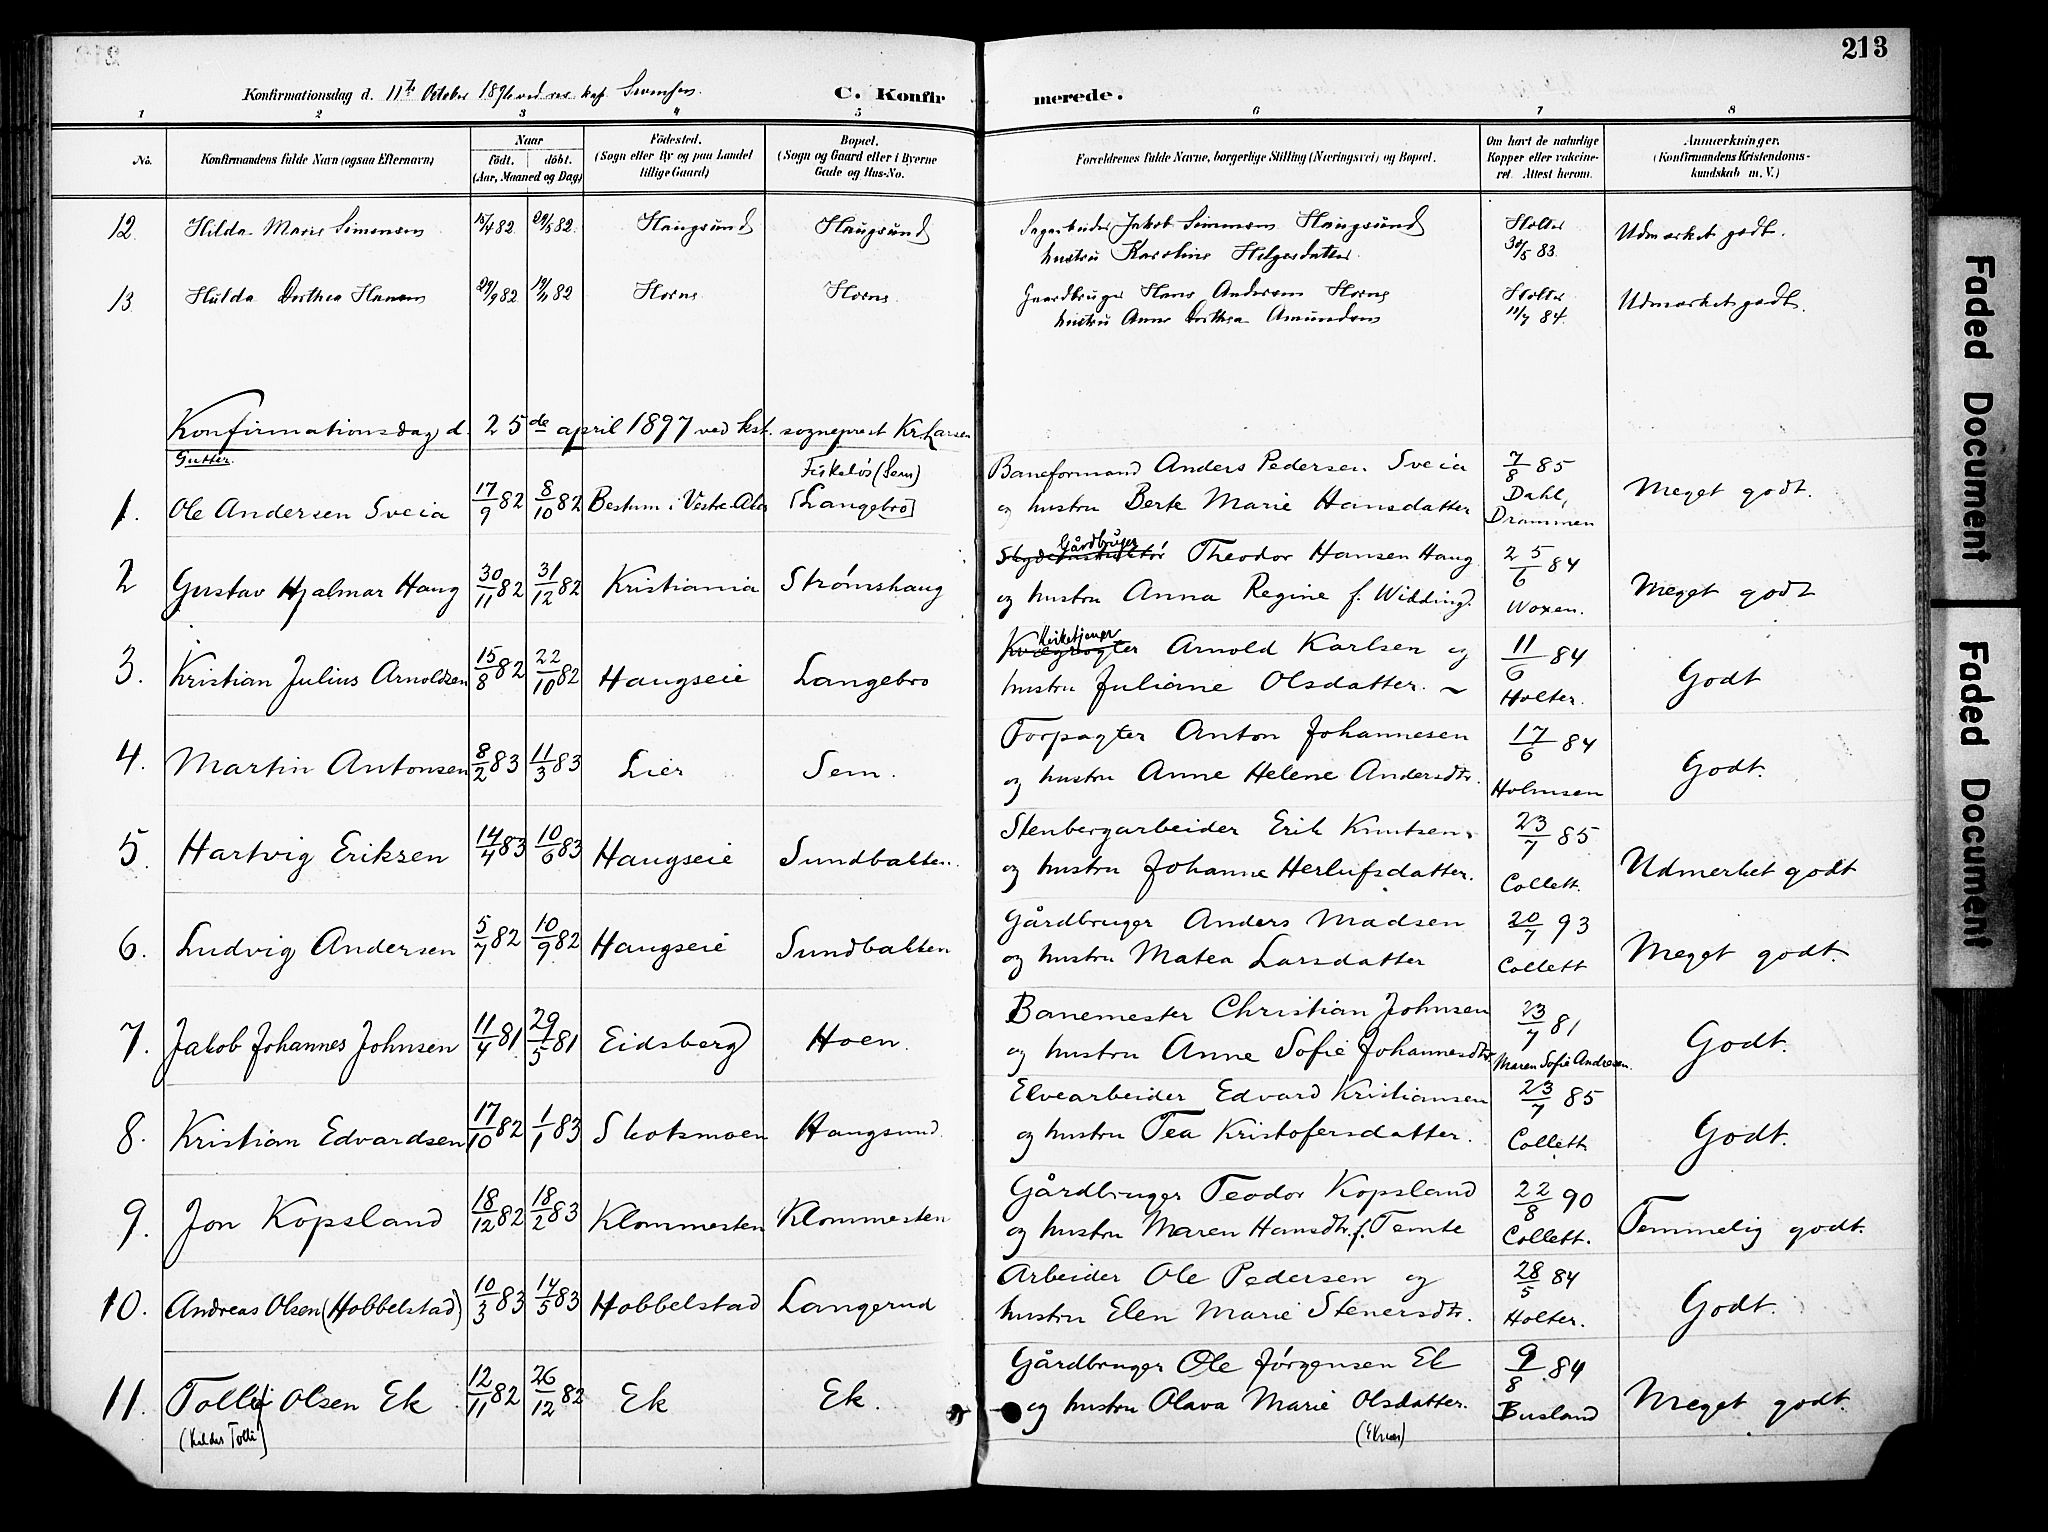 213
Konfirmationsdag d. 11te October 1896 ved res. kap.
C. Konfirmerede.
1 2 3 4 5 6 7 8
No.
Konfirmandens fulde Navn (ogsaa Efternavn)
Naar
födt. döbt.
(Aar, Maaned og Dag)
Födested.
(Sogn eller By og paa Landet
tillige Gaard)
Bopæl.
(Sogn og Gaard eller i Byerne
Gade og Hus-No.
Forældrenes fulde Navne, borgerlige Stilling (Næringsvei) og Bopæl.
Om havt de naturlige
Kopper eller vakcine-
ret. Attest herom.
Anmærkninger.
(Konfirmandens Kristendoms-
kundskab m. V.)
12 Hilda Marie Simensen 15/4 82 29/5 82. Haugsund Haugsund Sagarbeider Jakob Simensen Haugsund Holter Udmærket godt.
hustru Karoline Helgesdatter 30/5 83.
13 Hulda Dorthea Hansen 29/9 82 19/11 82 Horne Horne Gaardbruger Hans Andersen Horne Holter Udmærket godt.
hustru Anne Dorthea Amundsen 11/7 84.
Konfirmationsdag d. 25de april 1897 ved kst. sogneprest Kr. Larsen
Gutter.
Fiskeløs (Sem) Baneformand Anders Pedersen Sveia 7/8 85
1. Ole Andersen Sveia 17/9 82 8/10 82 Bestum i Vestre Aker [Langebro] og hustru Berte Marie Hansdatter Dahl, Drammen Meget godt.
Gårdbruger
2 Gustav Hjalmar Haug 30/11 82 31/12 82 Kristiania Strømshaug Theodor Hansen Haug 25/6 84 Meget godt
og hustru Anna Regine f. Widding. Woxen.
Kirketjener
3. Kristian Julius Arnoldsen 15/8 82 22/10 82 Haugseie Langebro Kvægrøgter Arnold Karlsen og 11/6 84 Godt
hustru Juliane Olsdatter. Holter.
4. Martin Antonsen 8/2 83 11/3 83 Lier Sem. Forpagter Anton Johannesen 17/6 84 Godt.
og hustru Anne Helene Andersdtr. Holmsen
5. Hartvig Eriksen 14/4 83 10/6 83 Haugseie Sundbakken. Stenbergarbeider Erik Knutsen 23/7 85 Udmerket godt
og hustru Johanne Herlufsdatter. Collett.
6. Ludvig Andersen 5/7 82 10/9 82 Haugseie Sundbakken Gårdbruger Anders Madsen 20/7 93 Meget godt.
og hustru Matea Larsdatter Collett
7. Jakob Johannes Johnsen 11/4 81 29/5 81 Eidsberg Hoen. Banemester Christian Johnsen 23/7 81 Godt.
og hustru Anne Sofie Johannesdtr. Maren Sofie Andresen.
8. Kristian Edvardsen 17/10 82 1/1 83 Skotsmoen Haugsund. Elvearbeider Edvard Kristiansen 23/7 85 Godt.
og hustru Tea Kristofersdatter. Collett
9. Jon Kopsland 18/12 82 18/2 83 Klommesten Klommesten Gårdbruger Teodor Kopsland 22/8 90 Temmelig godt.
og hustru Maren Hansdtr. f. Temte Collett.
10. Andreas Olsen (Hobbelstad) 10/3 83 14/5 83 Hobbelstad Langerud Arbeider Ole Pedersen og 28/5 84 Godt.
hustru Elen Marie Stenersdtr. Holter.
11. Tollef Olsen Ek 12/11 82 26/12 82 Ek Ek. Gårdbruger Ole Jørgensen Ek 9/8 84 Meget godt.
og hustru Olava Marie Olsdatter. Busland
(kaldes Tolli)
Faded Document
Faded Document